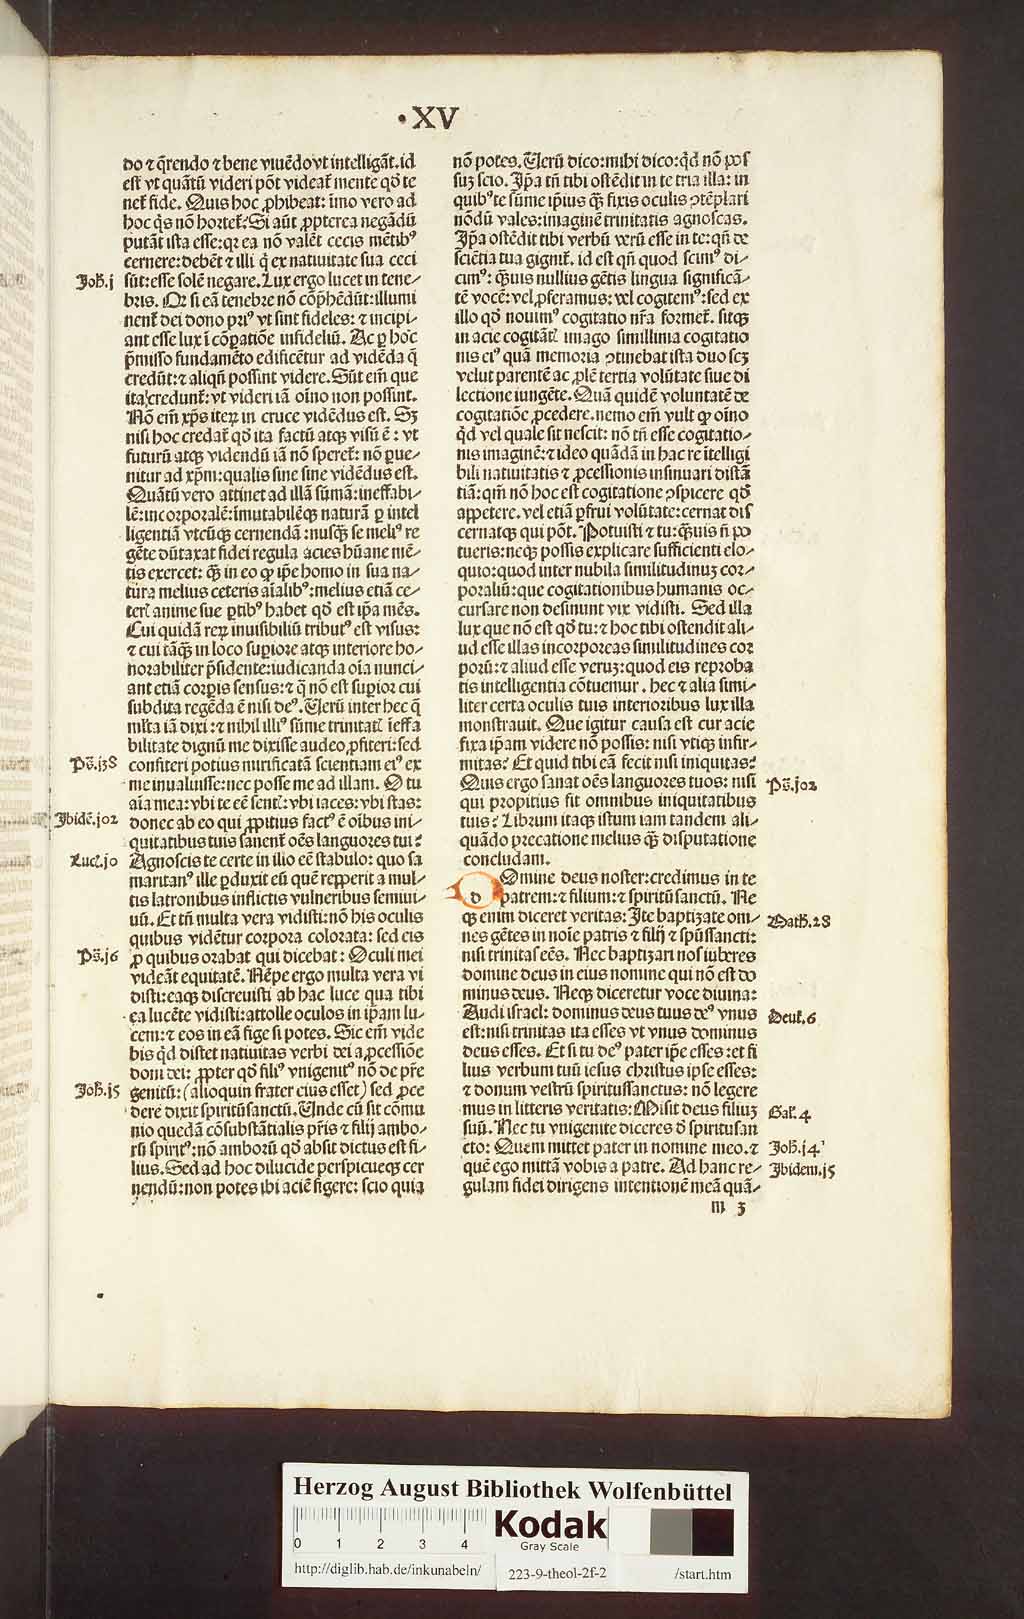 ·XV
do ⁊ q̄rendo ⁊ bene viuēdo vt intelligāt. id
est vt quātū videri pōt videat᷑ mente qđ te
net᷑ fide. Quis hoc ꝓhibeat: īmo vero ad
hoc q̇s nō hortet᷑? Si aūt ꝓpterea negādū
putāt ista esse: qꝛ ea nō valēt cecis mētibꝰ
cernere: debēt ⁊ illi q̇ ex natiuitate sua ceci
Joh̄. j
sūt: esse solē negare. Lux ergo lucet in tene-
bris. Qꝛ si eā tenebre nō cōp̄hēdūt: illumi
nent᷑ dei dono priꝰ vt sint fideles: ⁊ incipi-
ant esse lux ī cōꝑatiōe infideliū. Ac ꝑ hoc
p̄misso fundamēto edificētur ad vidēda q̄
credūt: ⁊ aliqn̄ possint videre. Sūt em̄ que
ita credunt᷑: vt videri iā oīno non possint.
Nō em̄ xp̄s iteꝝ in cruce vidēdus est. Sꝫ
nisi hoc credat᷑ qđ ita factū atqꝫ visū ē: vt
futurū atqꝫ videndū iā nō speret᷑: nō ꝑue-
nitur ad xp̄m: qualis sine fine vidēdus est.
Quātū vero attinet ad illā sūmā: ineffabi-
lē: incorporalē: imutabilēqꝫ naturā ꝑ intel
ligentiā vtcūqꝫ cernendā: nusqꝫ̄ se meliꝰ re
gēte dūtaxat fidei regula acies hūane mē-
tis exercet: qꝫ̄ in eo ꝙ ip̄e homo in sua na-
tura melius ceteris aīalibꝰ: melius etiā ce-
teris anime sue ꝑtibꝰ habet qđ est ip̄a mēs.
Cui quidā reꝝ inuisibiliū tributꝰ est visus:
⁊ cui tāqꝫ̄ in loco suꝑiore atqꝫ interiore ho-
norabiliter p̄sidente: iudicanda oīa nunci-
ant etiā corꝑis sensus: ⁊ q̄ nō est suꝑior cui
subdita regēda ē nisi deꝰ. Verū inter hec q̄
ml̄ta iā dixi: ⁊ nihil illiꝰ sūme trinitatis īeffa
bilitate dignū me dixisse audeo ꝓfiteri: sed
Pš. j38
confiteri potius mirificatā scientiam eiꝰ ex
me inualuisse: nec posse me ad illam. O tu
aīa mea: vbi te eē sentis: vbi iaces: vbi stas:
Ibidē. j02
donec ab eo qui ꝓpitius factꝰ ē oībus ini-
quitatibus tuis sanent᷑ oēs languores tui?
Luc̄. j0
Agnoscis te certe in illo eē stabulo: quo sa
maritanꝰ ille ꝑduxit eū quē repperit a mul-
tis latronibus inflictis vulneribus semiui-
uū. Et tn̄ multa vera vidisti: nō his oculis
quibus vidētur corpora colorata: sed eis
Pš. j6
ꝓ quibus orabat qui dicebat: Oculi mei
videāt equitatē. Nēpe ergo multa vera vi
disti: eaqꝫ discreuisti ab hac luce qua tibi
ea lucēte vidisti: attolle oculos in ip̄am lu-
cem: ⁊ eos in eā fige si potes. Sic em̄ vide
bis qđ distet natiuitas verbi dei a ꝓcessiōe
doni dei: ꝓpter qđ filiꝰ vnigenitꝰ nō de pr̄e
Joh̄. j5
genitū: (alioquin frater eius esset) sed ꝓce
dere dixit spiritūsanctū. Unde cū sit cōmu
nio quedā cōsubstātialis pr̄is ⁊ filij ambo-
rū spiritꝰ: nō amborū qđ absit dictus est fi-
lius. Sed ad hoc dilucide perspicueqꝫ cer
nendū: non potes ibi aciē figere: scio quia
nō potes. Verū dico: mihi dico: qđ nō pos
suꝫ scio. Ip̄a tn̄ tibi ostēdit in te tria illa: in
quibꝰ te sūme ip̄ius qꝫ̄ fixis oculis ꝯtēplari
nōdū vales: imaginē trinitatis agnoscas.
Ip̄a ostēdit tibi verbū verū esse in te: qn̄ de
sciētia tua gignit᷑. id est qn̄ quod scimꝰ di-
cimꝰ: qꝫ̄uis nullius gētis lingua significā-
tē vocē: vel ꝓferamus: vel cogitemꝰ: sed ex
illo qđ nouimꝰ cogitatio nr̄a formet᷑. sitqꝫ
in acie cogitātis imago simillima cogitatio
nis eiꝰ quā memoria ꝯtinebat ista duo scꝫ
velut parentē ac ꝓlē tertia volūtate siue di
lectione iungēte. Quā quidē voluntatē de
cogitatiōe ꝓcedere. nemo em̄ vult ꝙ oīno
qđ vel quale sit nescit: nō tn̄ esse cogitatio-
nis imaginē: ⁊ ideo quādā in hac re ītelligi
bili natiuitatis ⁊ ꝓcessionis insinuari distā
tiā: qm̄ nō hoc est cogitatione ꝯspicere qđ
appetere. vel etiā ꝑfrui volūtate: cernat dis
cernatqꝫ qui pōt. Potuisti ⁊ tu: qꝫ̄uis n̄ po
tueris: neqꝫ possis explicare sufficienti elo-
quio: quod inter nubila similitudinuꝫ cor-
poraliū: que cogitationibus humanis oc-
cursare non desinunt vix vidisti. Sed illa
lux que nō est qđ tu: ⁊ hoc tibi ostendit ali-
ud esse illas incorporeas similitudines cor
porū: ⁊ aliud esse veruꝫ: quod eis reproba
tis intelligentia cōtuemur. hec ⁊ alia simi-
liter certa oculis tuis interioribus lux illa
monstrauit. Que igitur causa est cur acie
fixa ip̄am videre nō possis: nisi vtiqꝫ infir-
mitas? Et quid tibi eā fecit nisi iniquitas?
Quis ergo sanat oēs languores tuos: nisi
Pš. j02
qui propitius fit omnibus iniquitatibus
tuis? Librum itaqꝫ istum iam tandem ali-
quādo precatione melius qꝫ̄ disputatione
concludam.
d Omine deus noster: credimus in te
patrem: ⁊ filium: ⁊ spiritū sanctū. Ne
qꝫ enim diceret veritas: Ite baptizate om-
Math̄. 28
nes gētes in noīe patris ⁊ filij ⁊ spūssancti:
nisi trinitas eēs. Nec baptizari nos iuberes
domine deus in eius nomine qui nō est do
minus deus. Neqꝫ diceretur voce diuina:
Audi israel: dominus deus tuus deꝰ vnus
Deut᷑. 6
est: nisi trinitas ita esses vt vnus dominus
deus esses. Et si tu deꝰ pater ip̄e esses: et fi
lius verbum tuū iesus christus ipse esses:
⁊ donum vestrū spiritussanctus: nō legere
mus in litteris veritatis: Misit deus filiuꝫ
Gal̄. 4
suū. Nec tu vnigenite diceres đ spiritusan
cto: Quem mittet pater in nomine meo. ⁊
Joh̄. j4
quē ego mittā vobis a patre. Ad hanc re-
Ibidem. j5
gulam fidei dirigens intentionē meā quā-
m 3
Herzog August Bibliothek Wolfenbüttel
0 1 2 3 4
Kodak
Gray Scale
http://diglib.hab.de/inkunabeln/
223-9-theol-2f-2
/start.htm